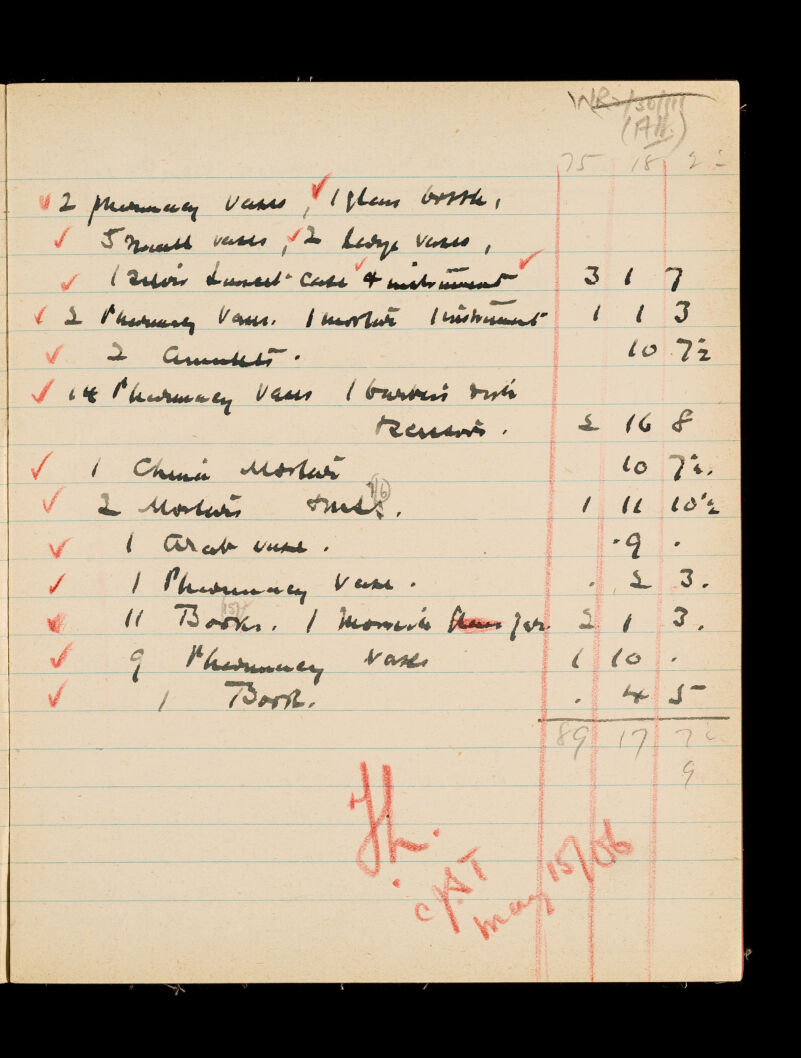 WR 2/30/11
(All.)
75 18 2½
2 pharmacy vases, 1 glass bottle,
5 small vases, 2 large vases,
1 silver Lancet case & instrument 3 1 7
2 Pharmacy Vases. 1 mortar 1 instrument 1 1 3
2 Amulets. 10 7½
14 Pharmacy Vases 1 barber's dish
& scissors. 2 16 8
1 China Mortar 10 7½.
2 Mortars 1 11 10½
1 Arab vase. . 9 .
1 Pharmacy Vase. . 2 3.
11 Books. 1 jar. 2 1 3.
9 Pharmacy Vases 1 10 .
1 Book. . 4 5
89 17 7½
9
May 15/06